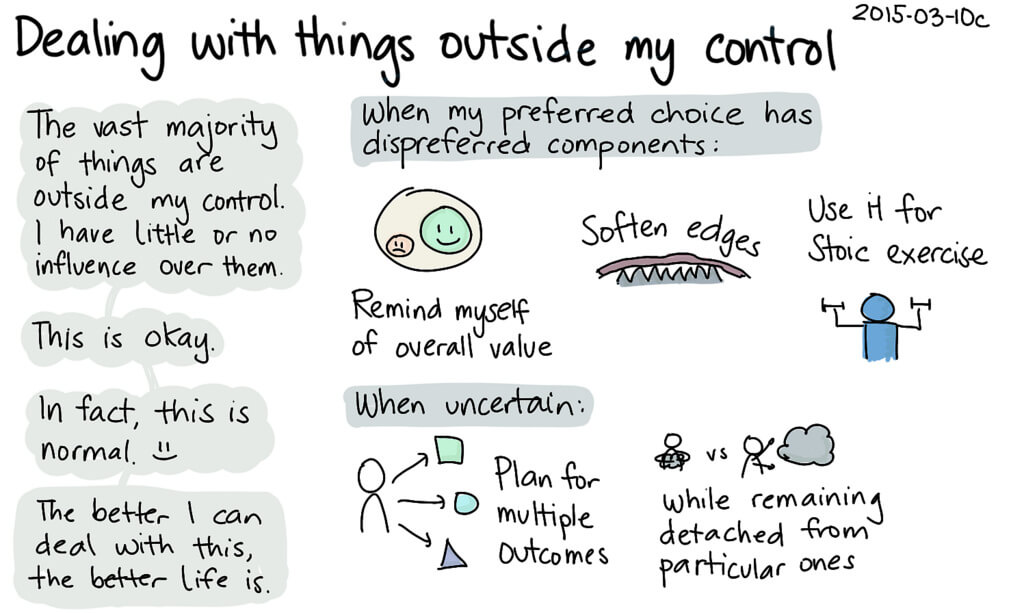 2015-03-10c
Dealing with things outside my control
The vast majority
of things are
outside my control.
I have little or no
influence over them.
This is okay.
In fact, this is
normal.
The better I can
deal with this,
the better life is.
When my preferred choice has
dispreferred components:
Remind myself
of overall value
Soften edges
Use it for
Stoic exercise
When uncertain:
Plan for
multiple
outcomes
vs
while remaining
detached from
particular ones